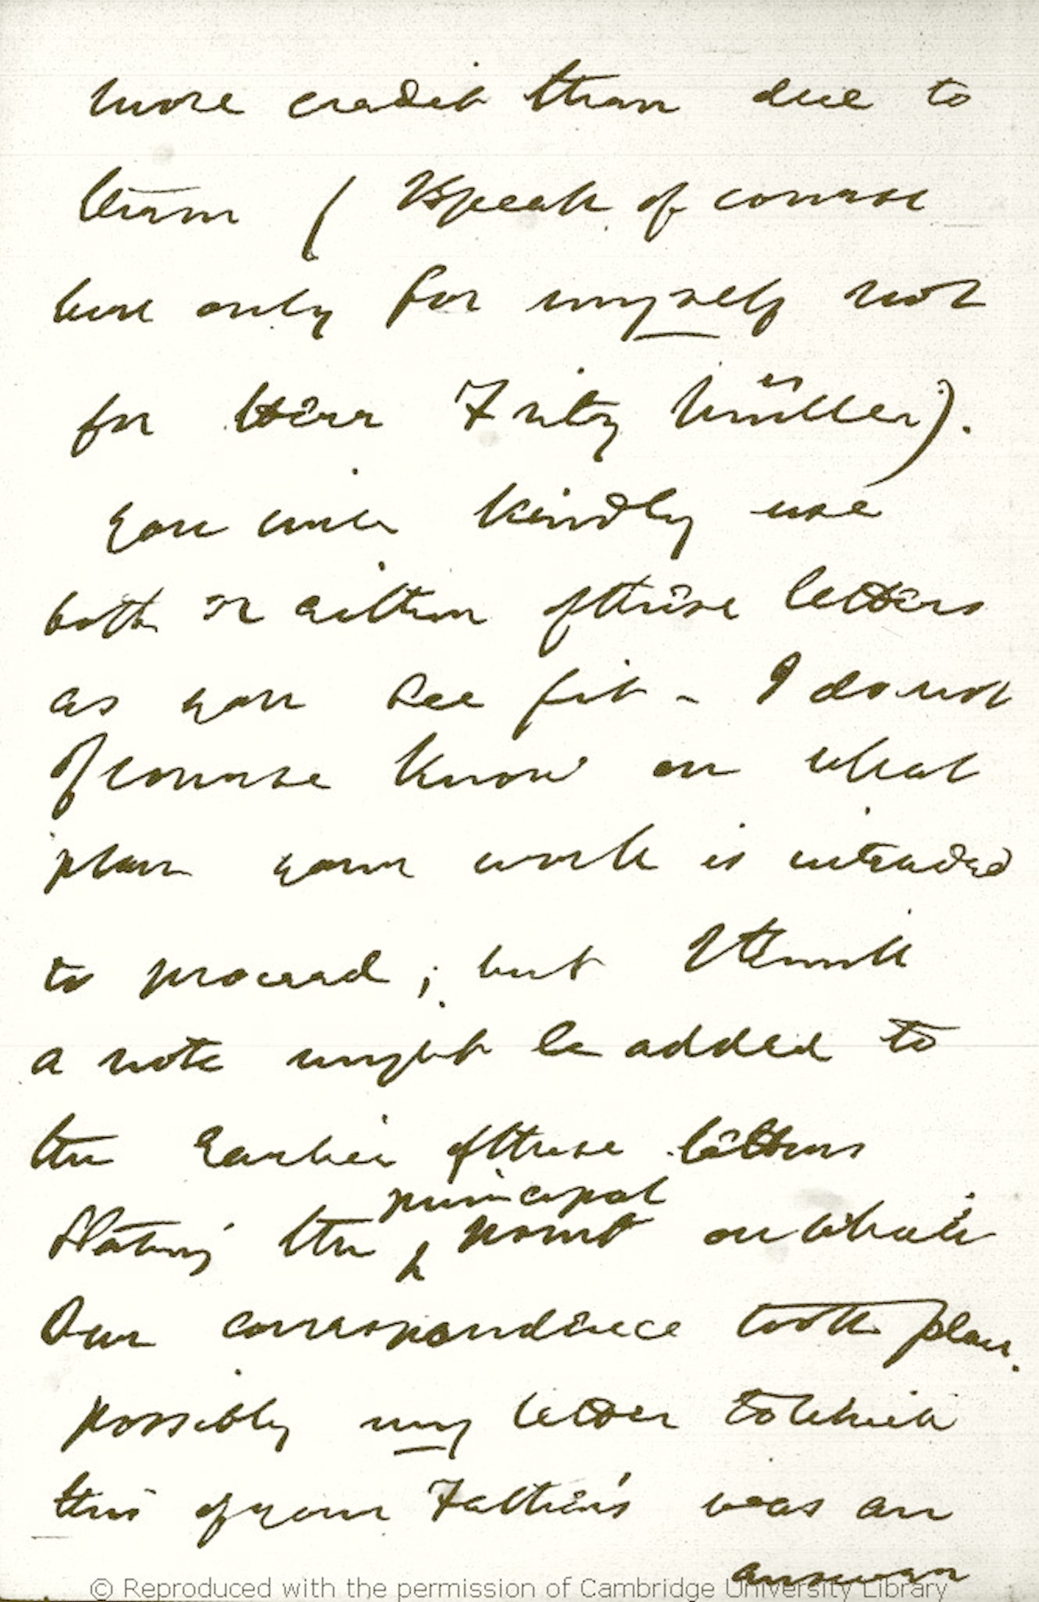 more credit than due to
them ( I speak of course
here only for myself not
for Herr Fritz Müller).
You will kindly use
both or either of these letters
as you see fit – I do not
of course know on what
plan your work is intended
to proceed; but I think
a note might be added to
the Earlier of these letters
principal
Stating the point on which
Our correspondence took place.
possibly my letter to which
this of your Father's was an
answer
© Reproduced with the permission of Cambridge University Library